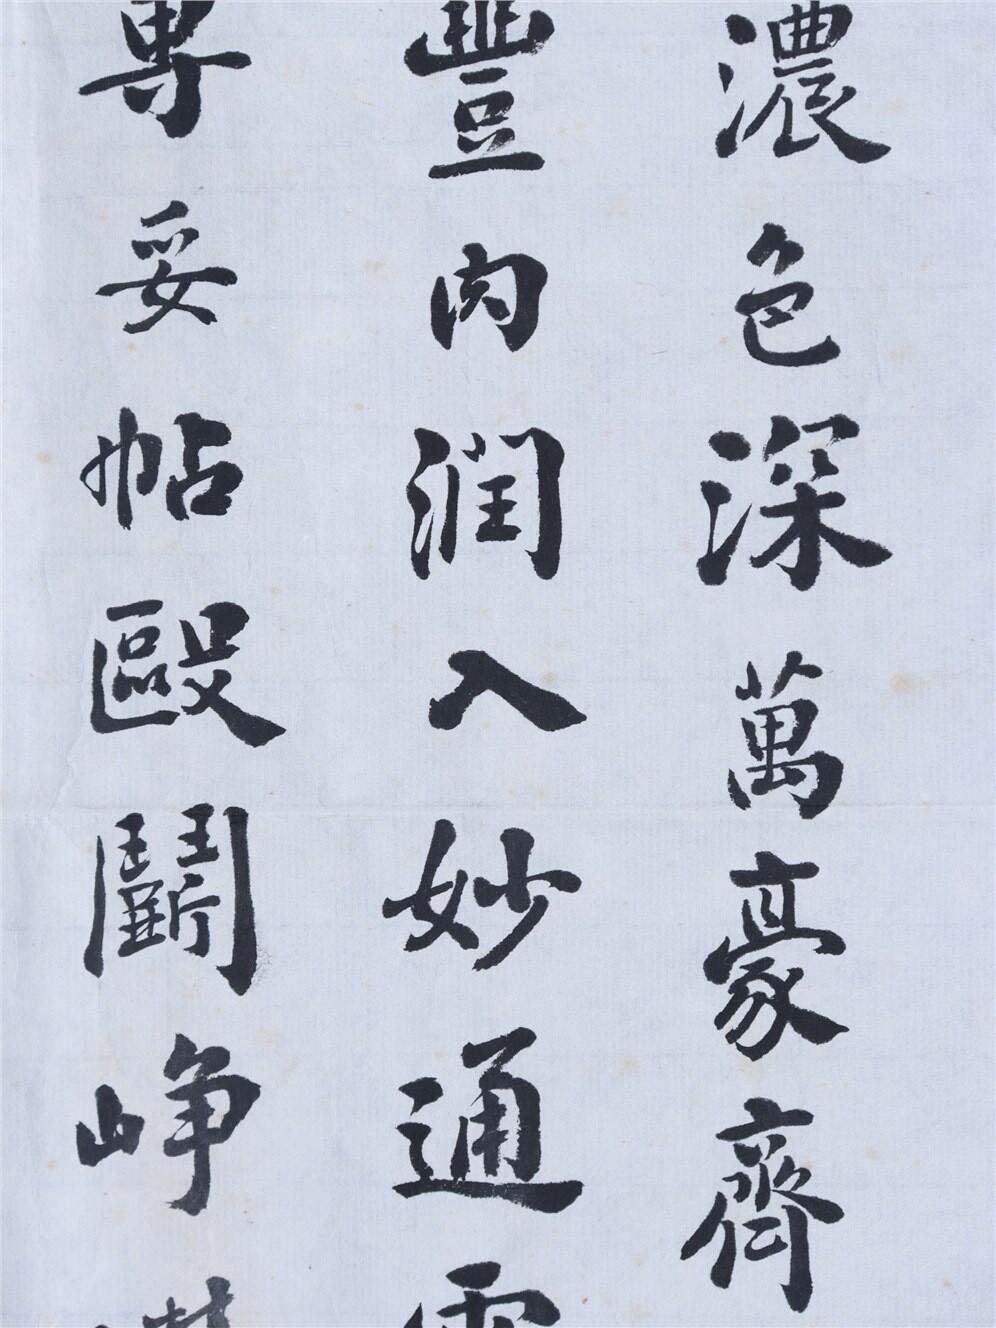 濃色深萬豪齊
豐肉潤入妙通
專妥帖毆鬭崢